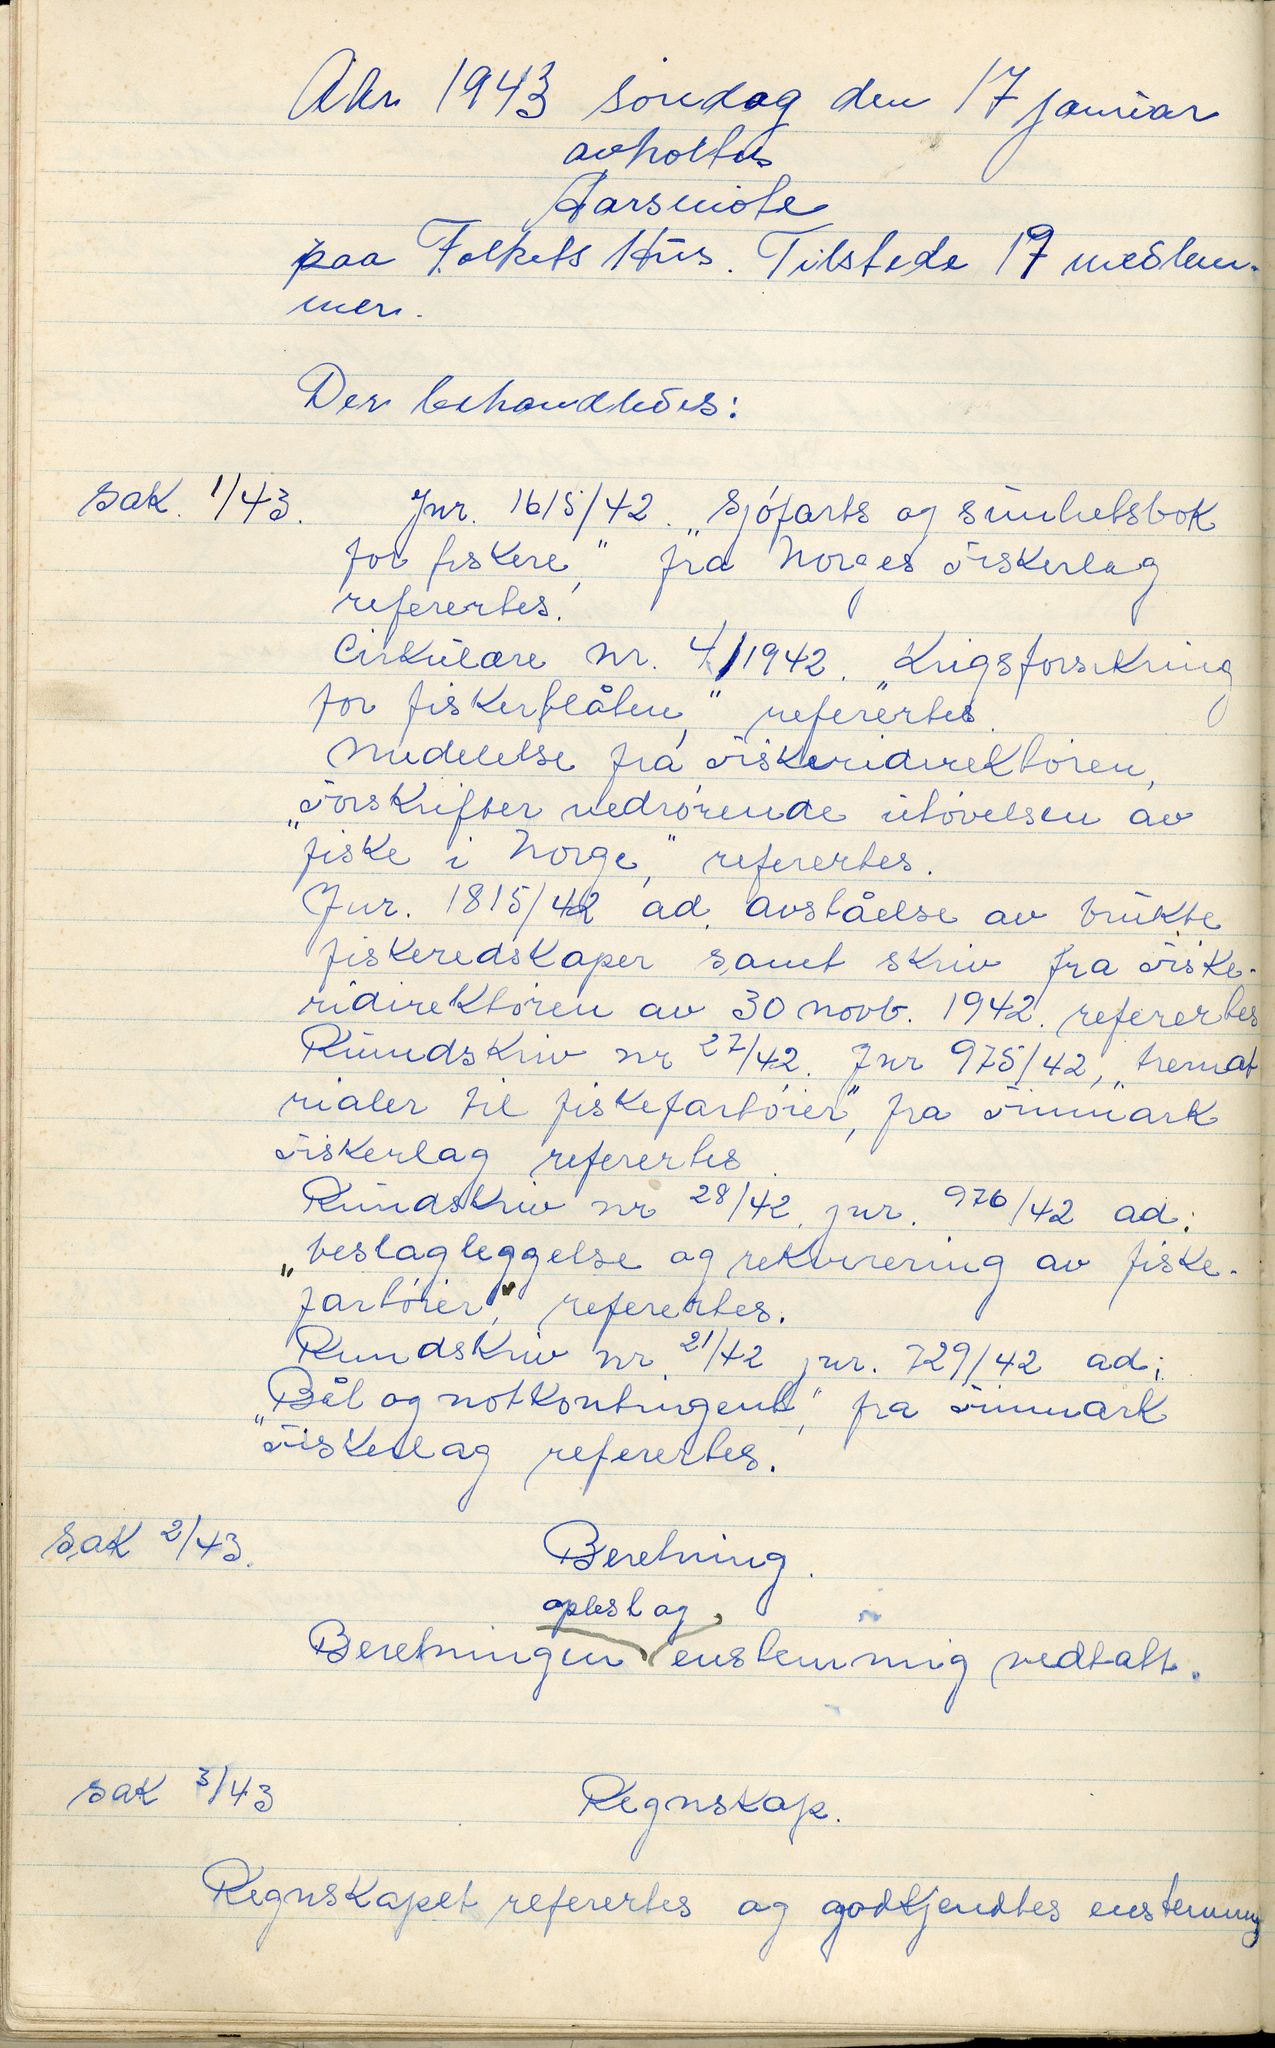 Aar 1943 søndag den 17 januar
avholtes
Aarsmøte
paa Folkets Hus. Tilstede 17 medlem-
mer.
Der behandledes:
Sak 1/43. Jnr. 1615/42. „Sjøfarts og sunhetsbok
for fiskere," fra Norges Fiskerlag
referertes.
Cirkulære nr. 4/1942. „Krigsforsikring
for fiskerflåten," referertes.
Medelelse fra Fiskeridirektøren,
„Forskrifter vedrørende utøvelsen av
fiske i Norge," referertes.
Jnr. 1815/42 ad. avståelse av brukte
fiskeredskaper samt skriv fra Fiske-
ridirektøren av 30 novb. 1942. referertes
Rundskriv nr 27/42. Jnr 975/42, „tremat
rialer til fiskefartøier", fra Finnmark
Fiskerlag referertes.
Rundskriv nr 28/42. jnr. 976/42 ad:
„beslagleggelse og rekvirering av fiske-
fartøier," referertes.
Rundskriv nr 21/42 jnr. 729/42 ad;
„Båt og notkontingent," fra Finnmark
Fiskerlag referertes.
Sak 2/43. Beretning.
oplest og
Beretningen enstemmig vedtatt.
Sak 3/43 Regnskap.
Regnskapet referertes og godkjendtes enstemmig